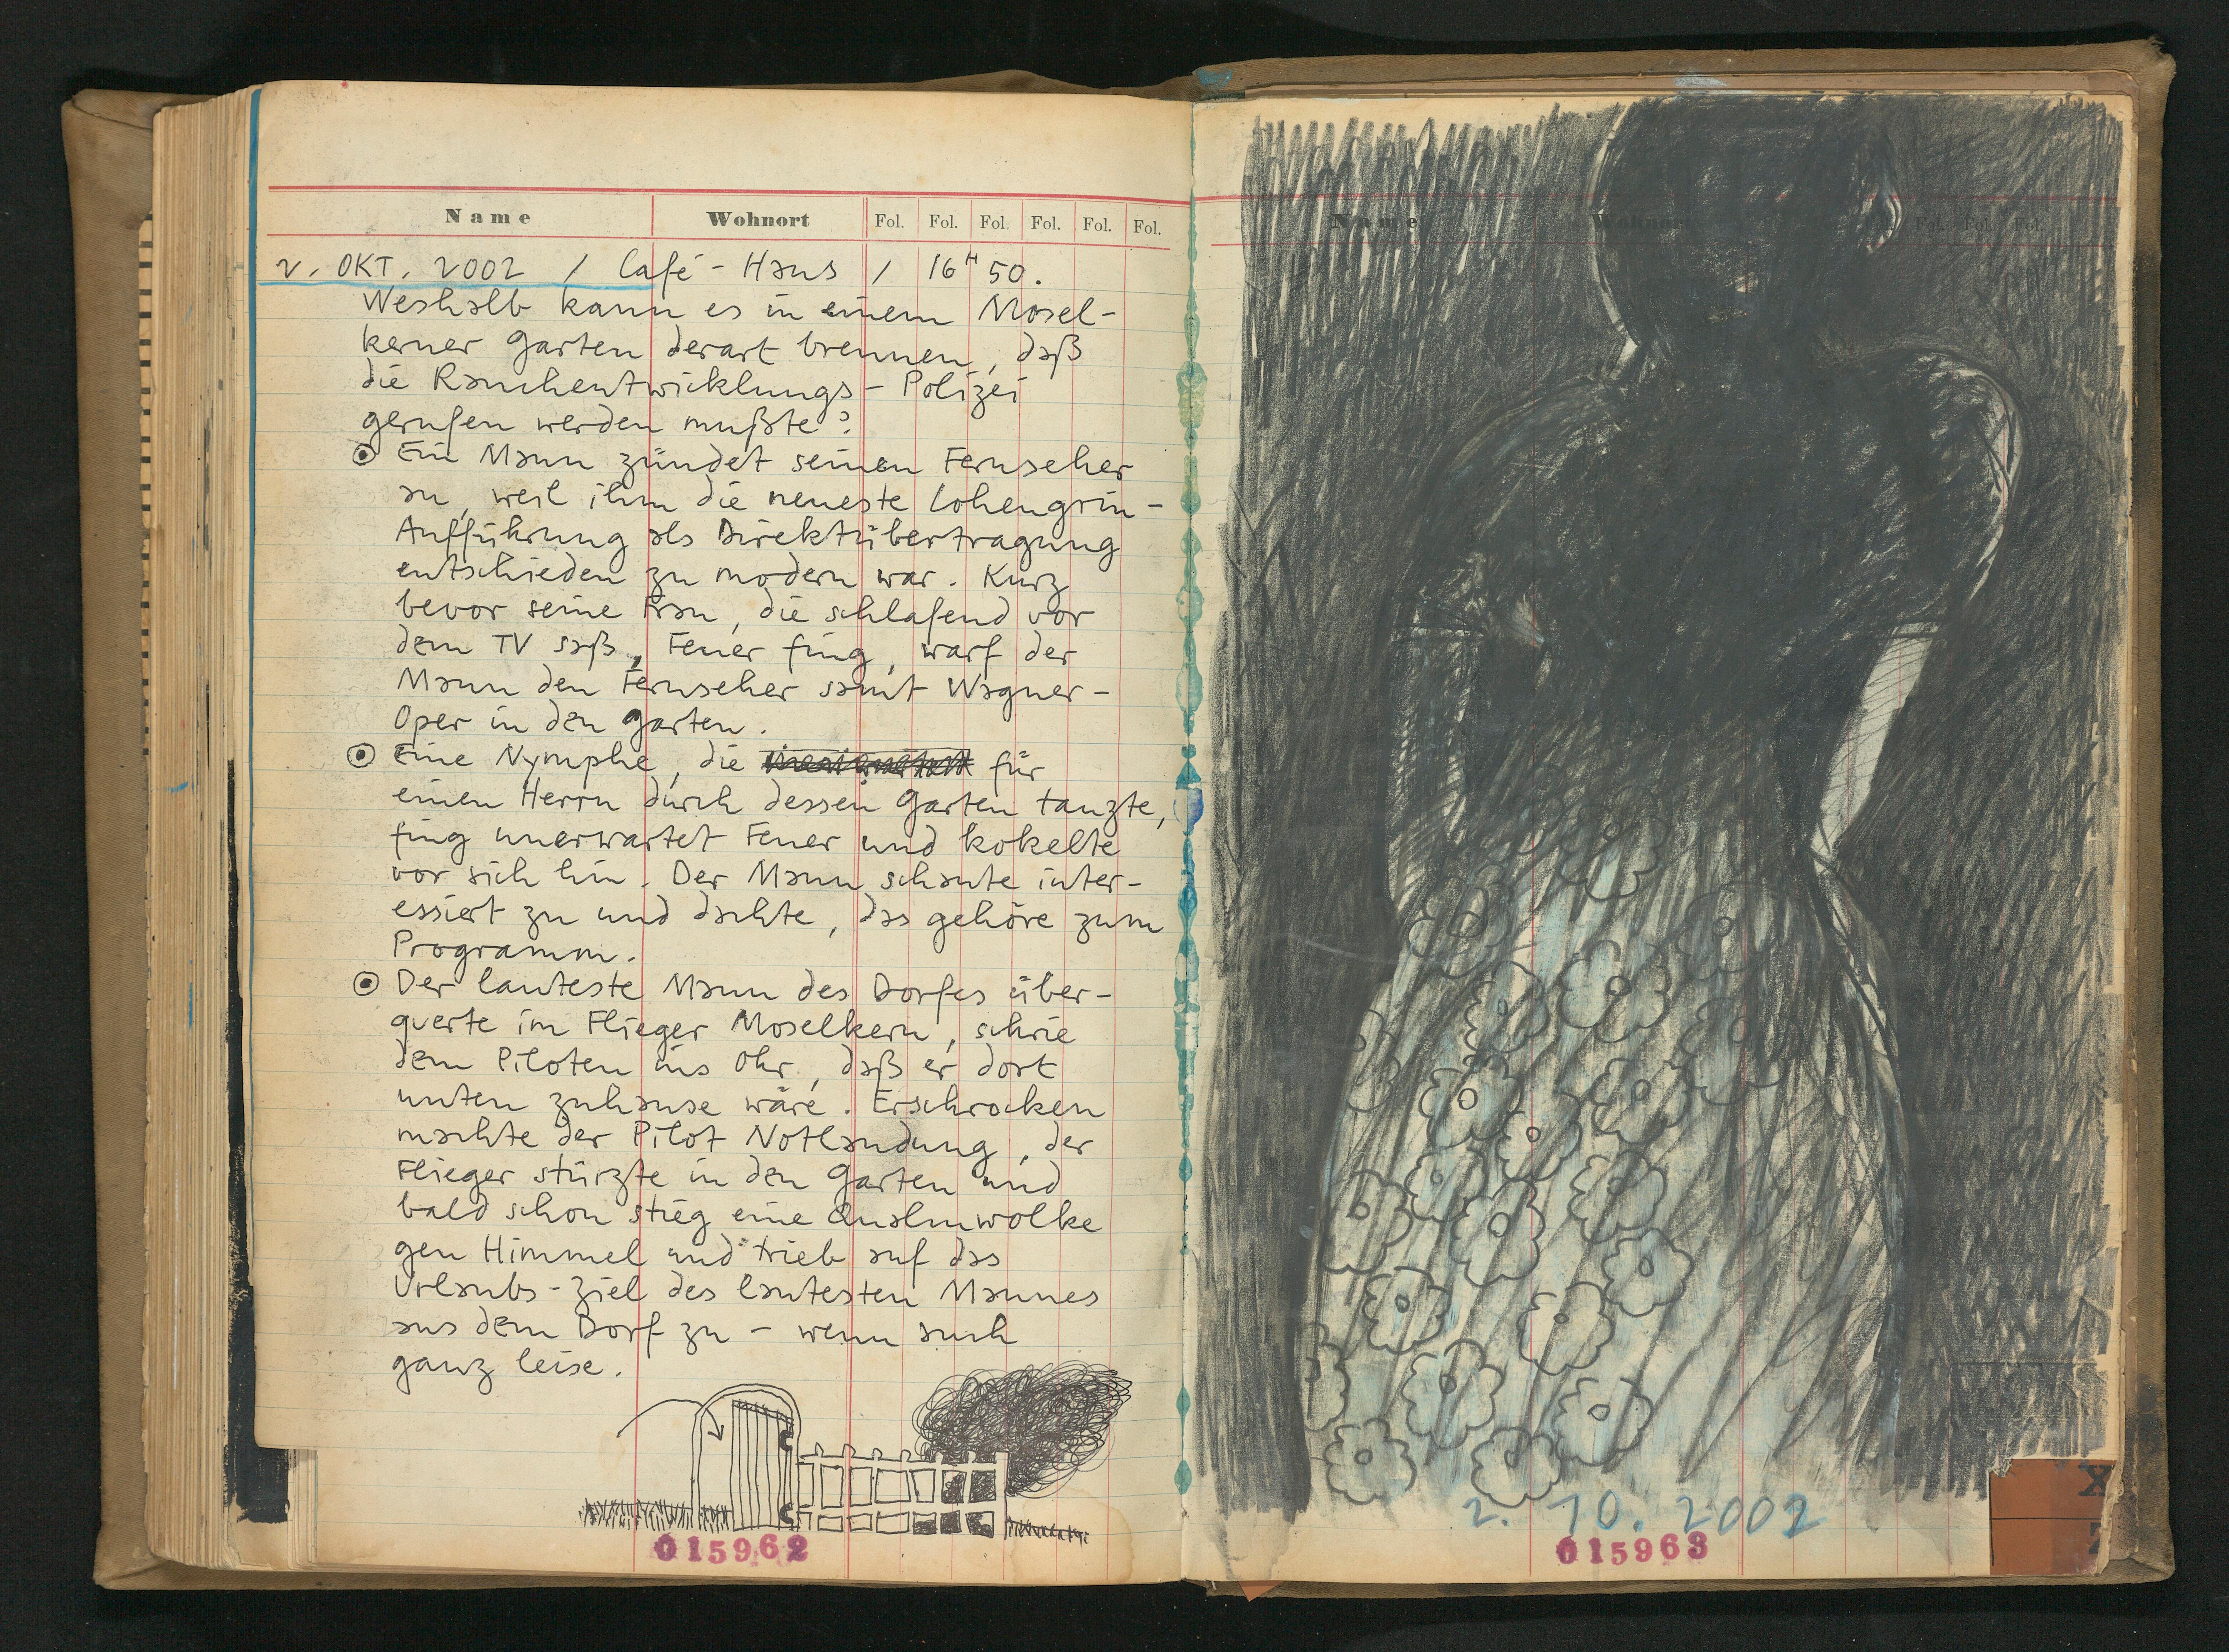 Name Wohnort Fol. Fol. Fol. Fol. Fol. Fol.
2. OKT. 2002 / Café-Haus / 16H 50.
Weshalb kann es in einem Mosel-
kerner Garten derart brennen, daß
die Rauchentwicklungs-Polizei
gerufen werden mußte?
Ein Mann zündet seinen Fernseher
an, weil ihm die neueste Lohengrin-
Aufführung als Direktübertragung
entschieden zu modern war. Kurz
bevor seine Frau, die schlafend vor
dem TV saß, Feuer fing, warf der
Mann den Fernseher samt Wagner-
Oper in den Garten.
Eine Nymphe, die für
einen Herrn durch dessen Garten tanzte,
fing unerwartet Feuer und kokelte
vor sich hin. Der Mann schaute inter-
essiert zu und dachte, das gehöre zum
Programm.
Der lauteste Mann des Dorfes über-
querte im Flieger Moselkern, schrie
dem Piloten ins Ohr, daß er dort
unten zuhause wäre. Erschrocken
machte der Pilot Notlandung, der
Flieger stürzte in den Garten und
bald schon stieg eine Qualmwolke
gen Himmel und trieb auf das
Urlaubs-Ziel des lautesten Mannes
aus dem Dorf zu – wenn auch
ganz leise.
015962
Name Wohnort Fol. Fol. Fol.
2. 10. 2002
015963
X